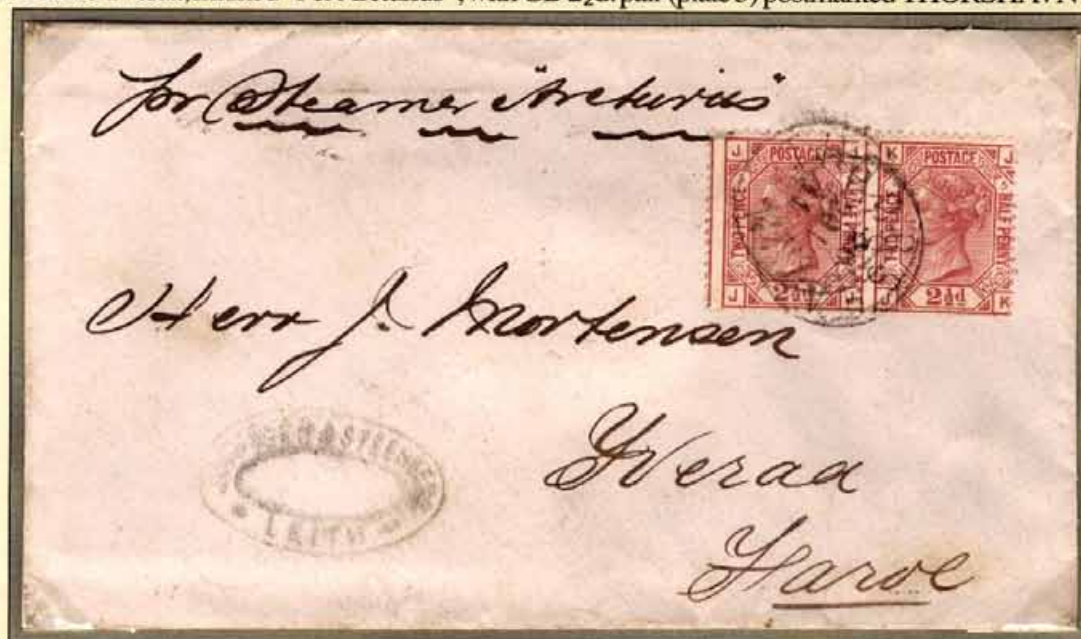 with GB 2½d. pair (plate 3) postmarked THORSHAVN
pr Steamer "Arcturus"
J POSTAGE J
TWOPENCE HALFPENNY
J 2½d J
K POSTAGE J
TWOPENCE HALFPENNY
J 2½d K
Herr J. Mortensen
Hveraa
Faroe
LEITH